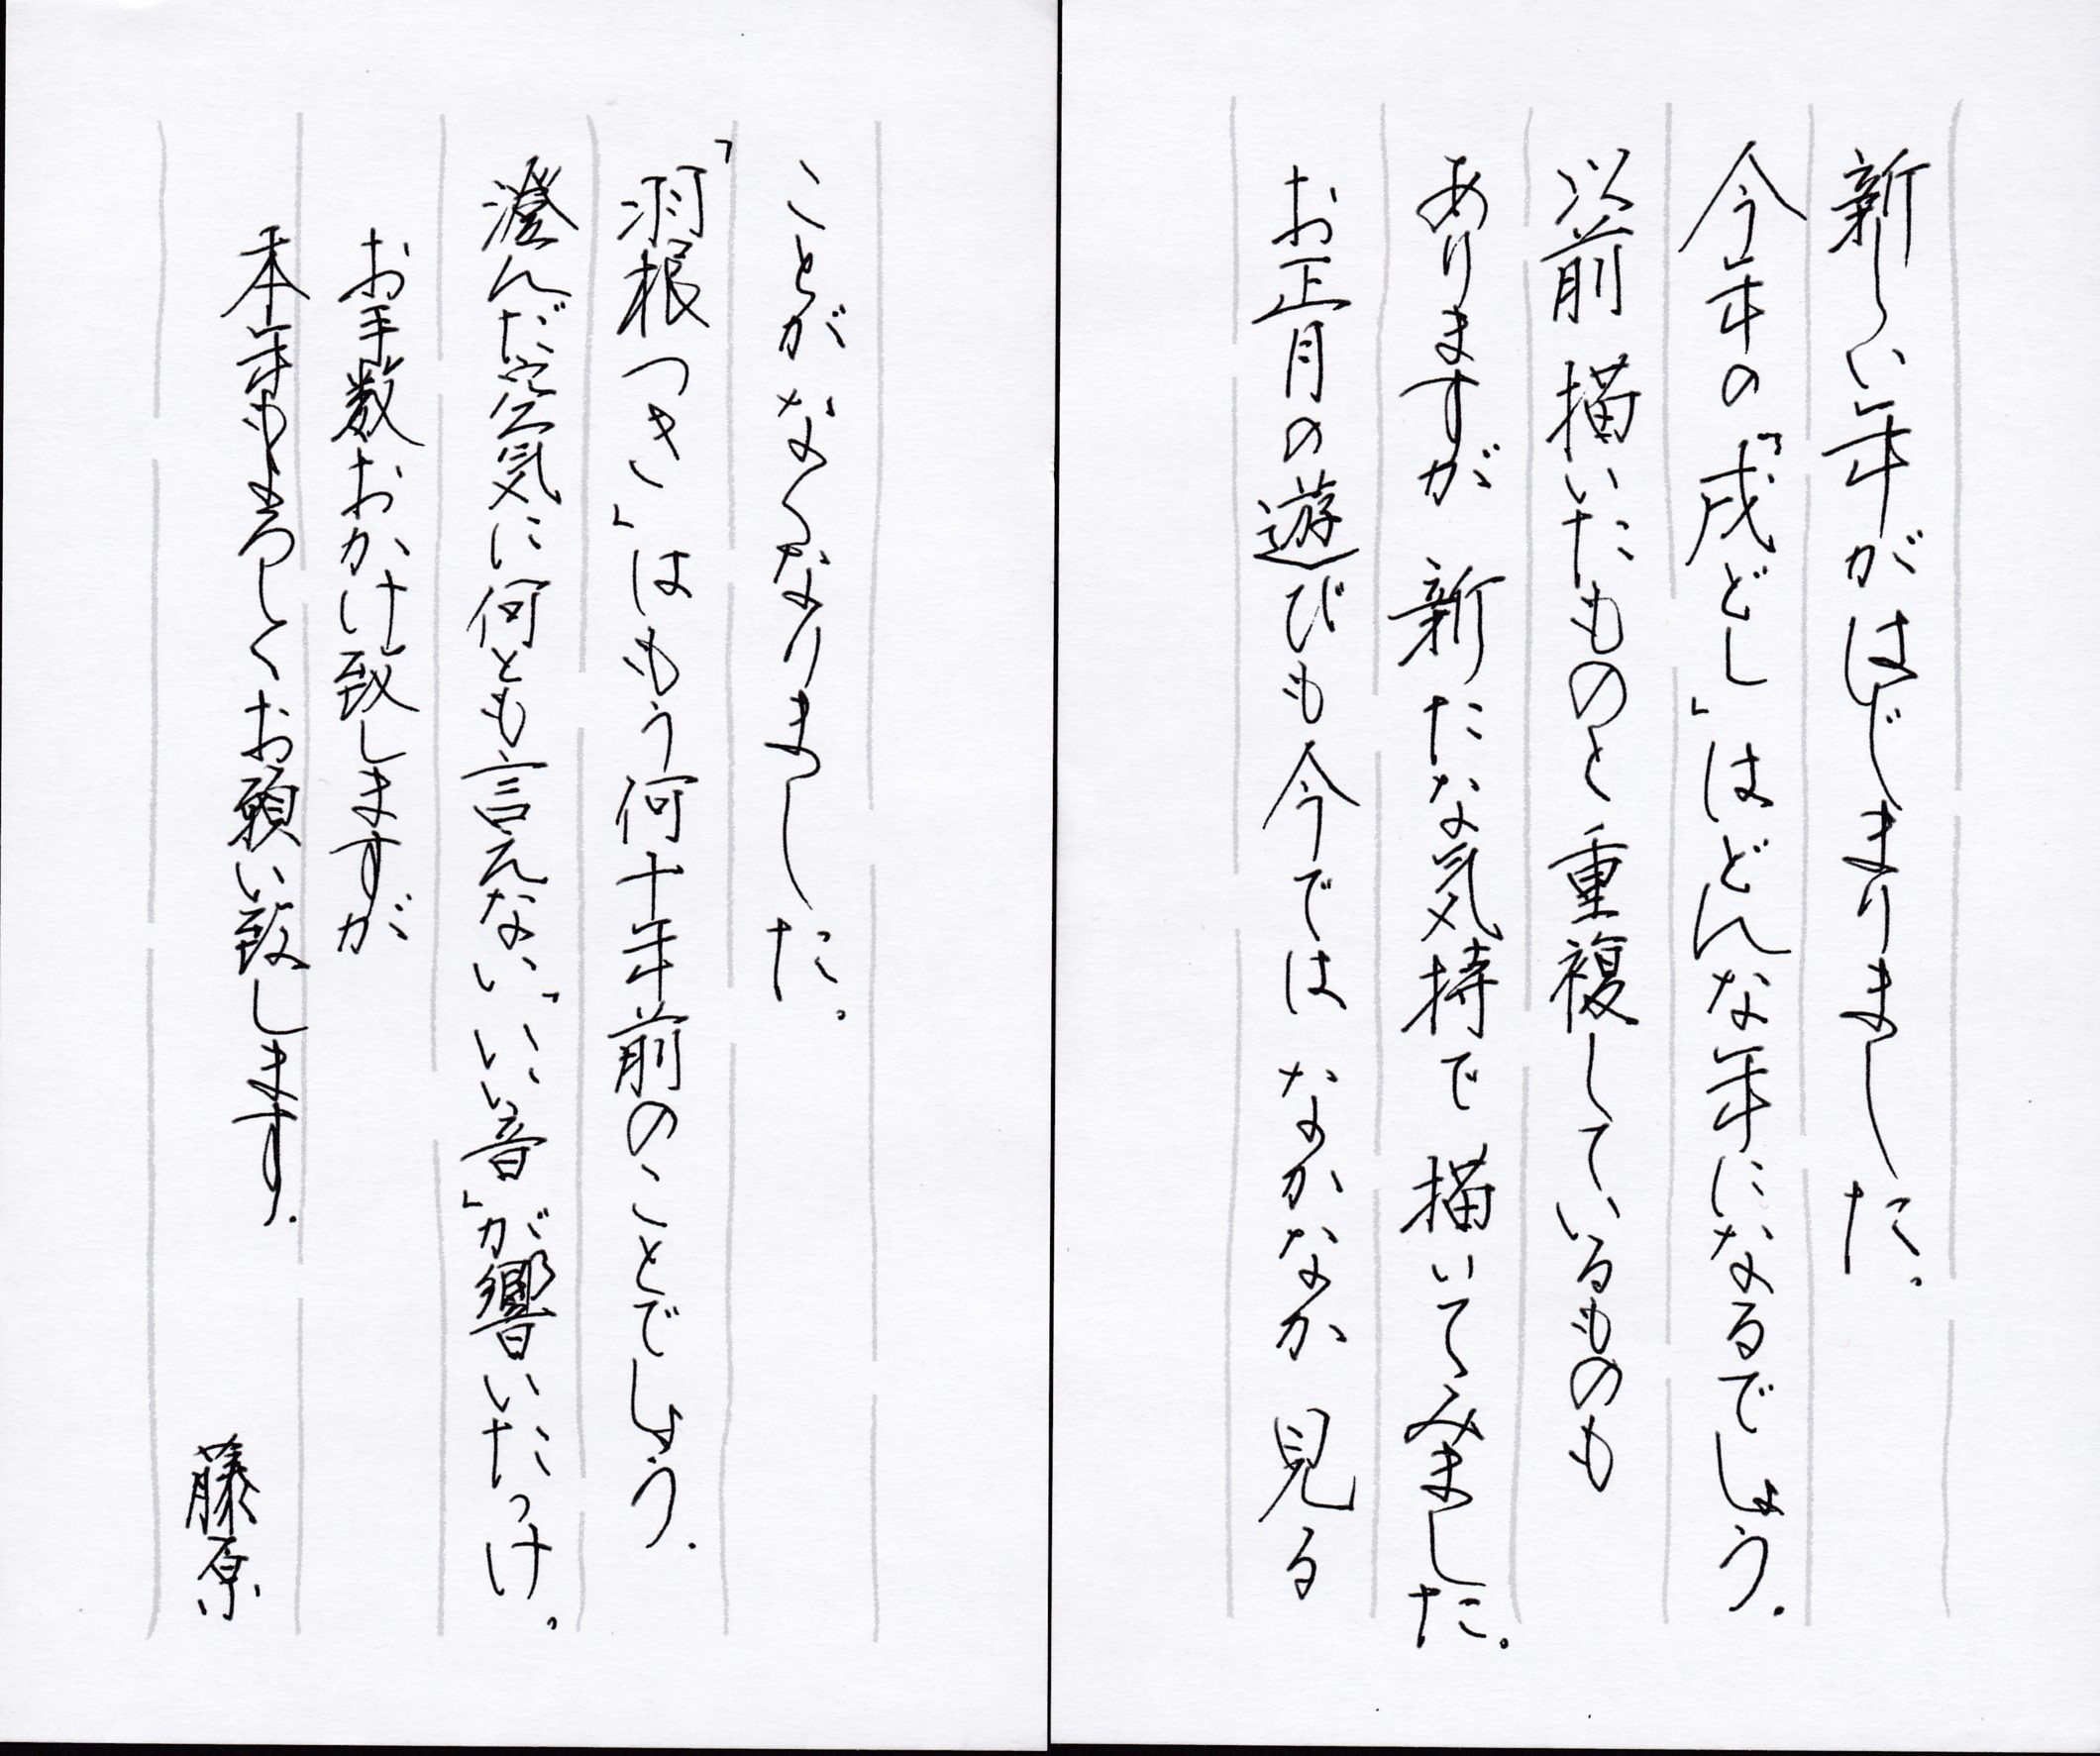 新しい年がはじまりました。
今年の「戌どし」はどんな年になるでしょう.
以前 描いたものと重複しているものも
ありますが 新たな気持で 描いてみました。
お正月の遊びも今では なかなか 見る
ことがなくなりました。
「羽根つき」はもう何十年前のことでしょう.
澄んだ空気に何とも言えない「いい音」が響いたっけ。
お手数おかけ致しますが
本年もよろしくお願い致します.
藤原